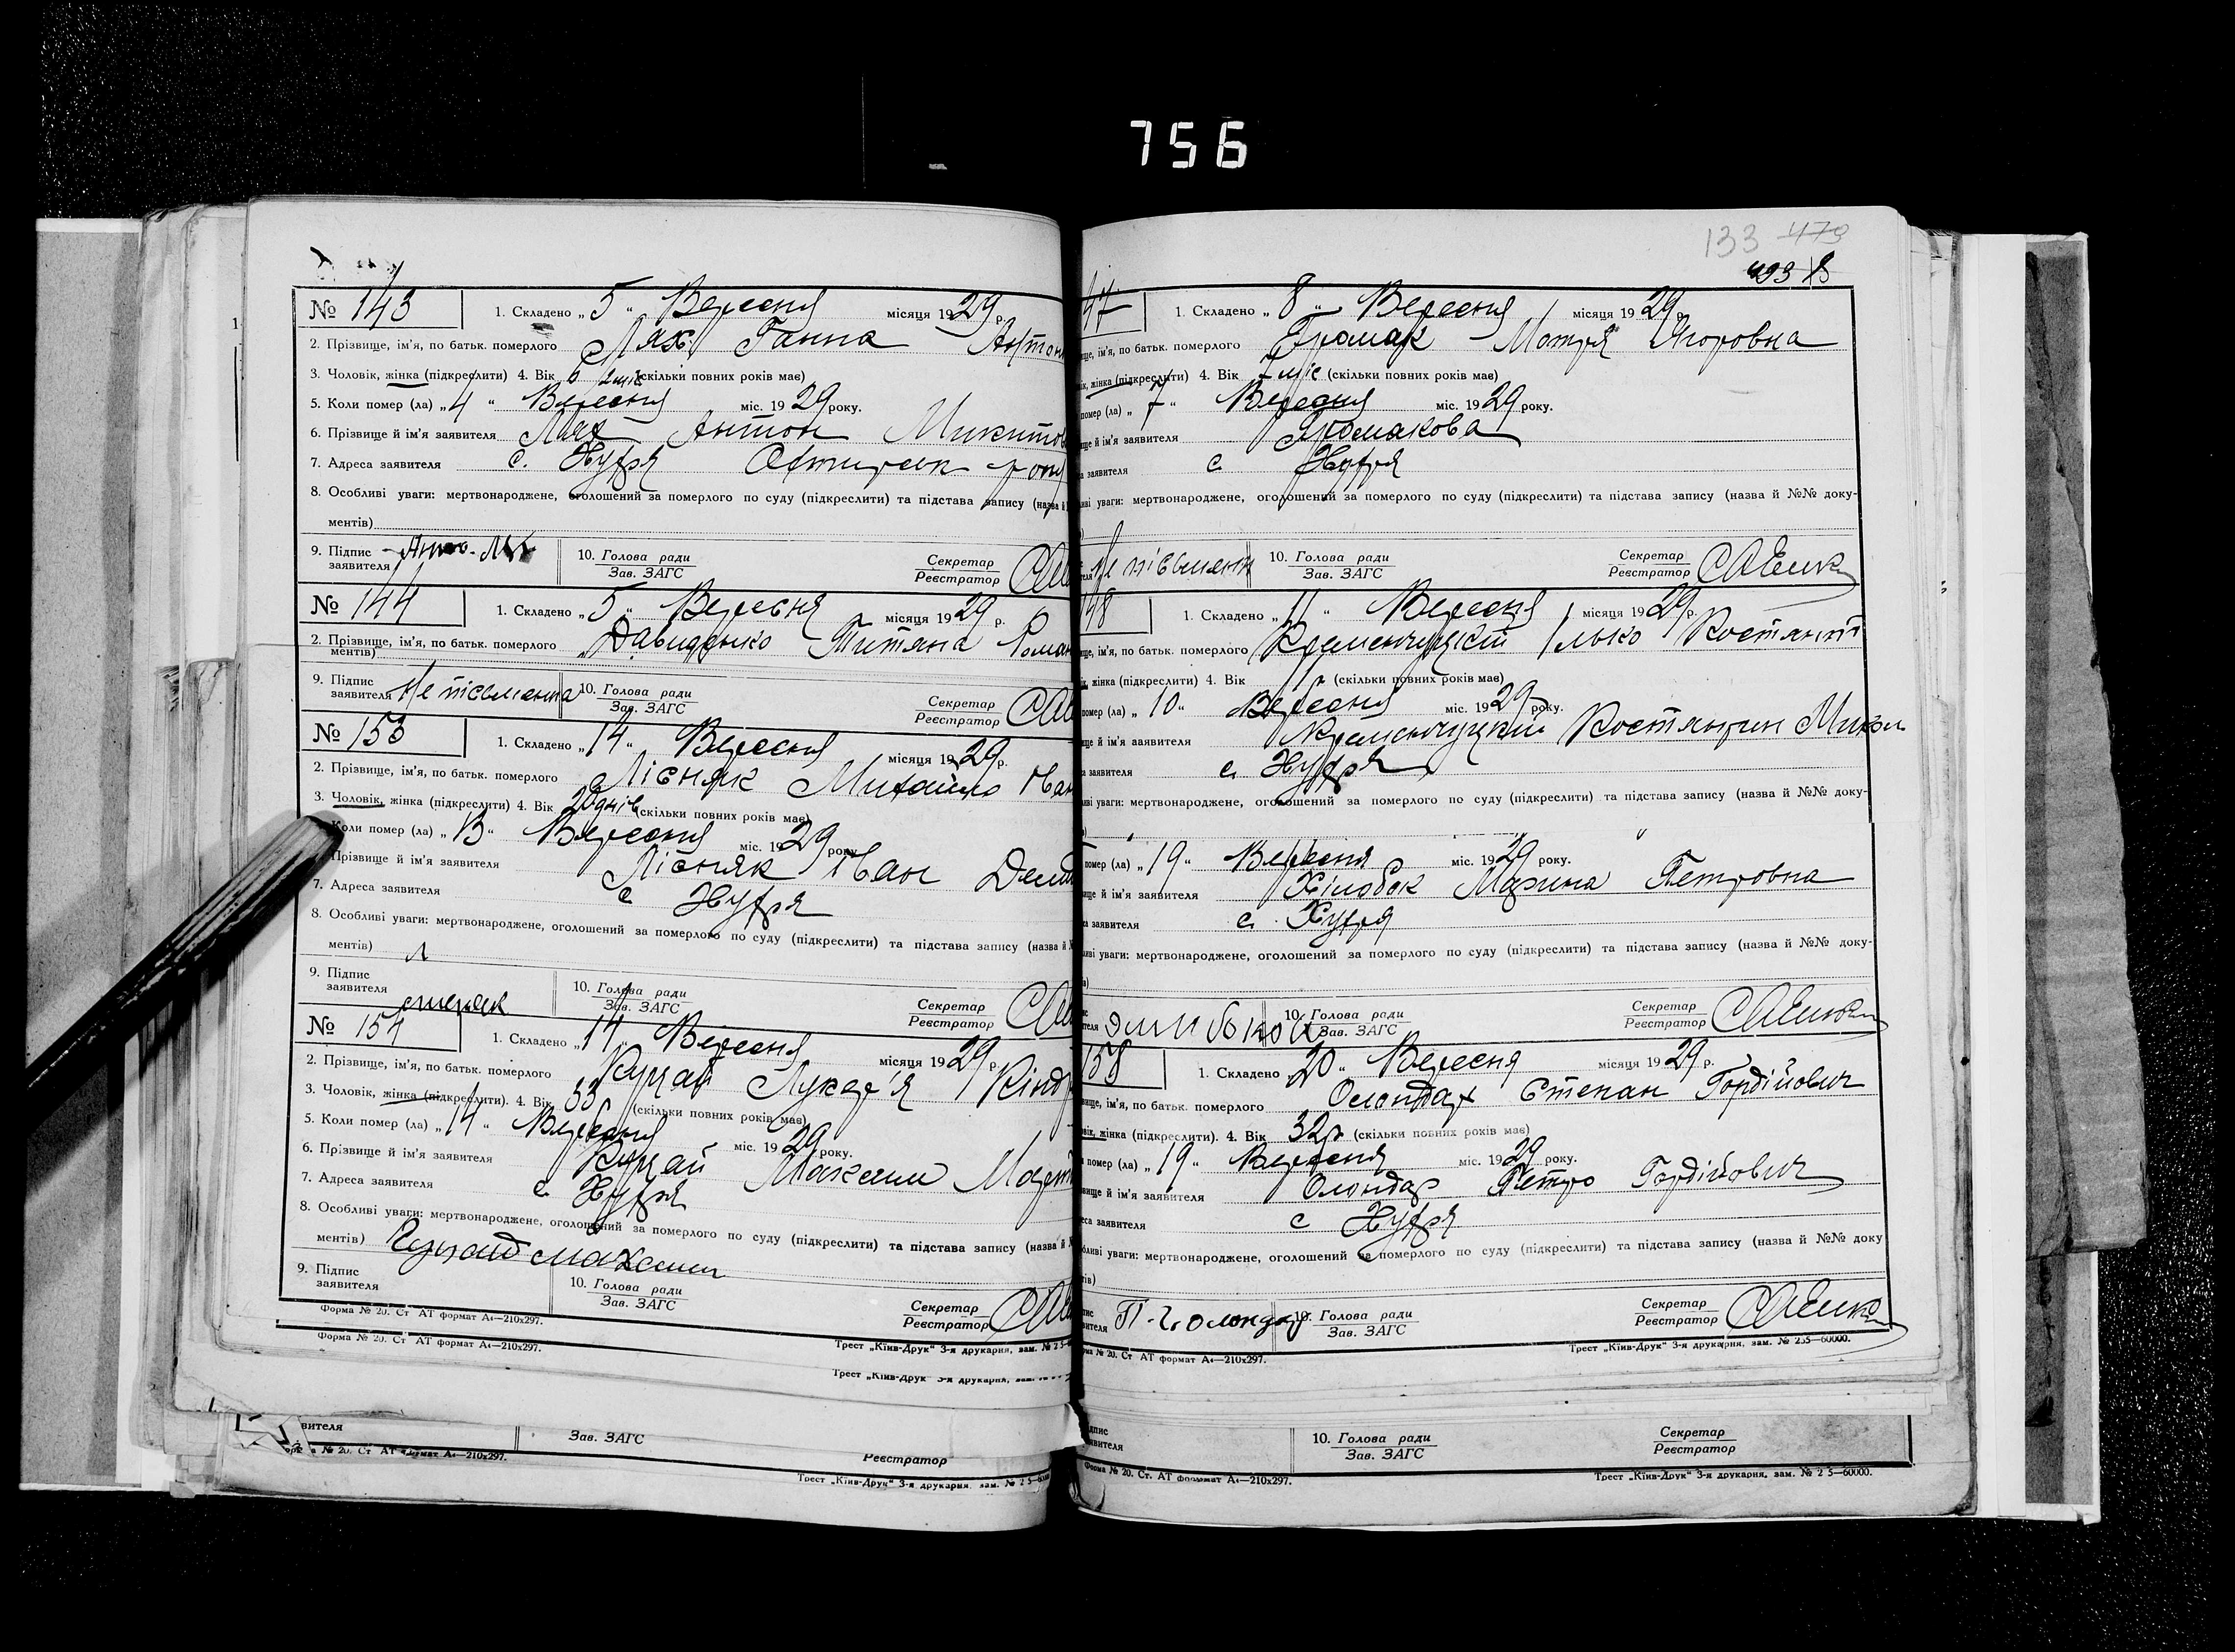 756
№ 143 1. Складено „5" Вересня місяця 1929 р.
2. Прізвище, ім'я, по батьк. померлого Лях Ганна Антон
3. Чоловік, жінка (підкреслити) 4. Вік (скільки повних років має)
5. Коли помер (ла) „4" Вересня міс. 1929 року.
6. Прізвище й ім'я заявителя Лях Антон Микитов
7. Адреса заявителя с. Хухря Охтирськ
8. Особливі уваги: мертвонароджене, оголошений за померлого по суду (підкреслити) та підстава запису (назва й
ментів)
9. Підпис заявителя 10. Голова ради Зав. ЗАГС Секретар Реєстратор
№ 144 1. Складено „5" Вересня місяця 1929 р.
2. Прізвище, ім'я, по батьк. померлого Давиденко Титяна Роман
ментів)
9. Підпис заявителя Не пісьменна 10. Голова ради Зав. ЗАГС Секретар Реєстратор
№ 153 1. Складено „14" Вересня місяця 1929 р.
2. Прізвище, ім'я, по батьк. померлого Лісняк Михайло Іван
3. Чоловік, жінка (підкреслити) 4. Вік 20 днів (скільки повних років має)
Коли помер (ла) „13" Вересня міс. 1929 року
Прізвище й ім'я заявителя Лісняк Іван Дем
7. Адреса заявителя с Хухря
8. Особливі уваги: мертвонароджене, оголошений за померлого по суду (підкреслити) та підстава запису (назва й
ментів)
9. Підпис заявителя 10. Голова ради Зав. ЗАГС Секретар Реєстратор
№ 154 1. Складено „14" Вересня місяця 1929 р.
2. Прізвище, ім'я, по батьк. померлого Куцай Лукер'я Кінд
3. Чоловік, жінка (підкреслити). 4. Вік 55 (скільки повних років має)
5. Коли помер (ла) „14" Вересня міс. 1929 року.
6. Прізвище й ім'я заявителя Куцай Максим Март
7. Адреса заявителя с Хухря
8. Особливі уваги: мертвонароджене, оголошений за померлого по суду (підкреслити) та підстава запису (назва й
ментів)
9. Підпис заявителя 10. Голова ради Зав. ЗАГС Секретар Реєстратор
Форма № 20. Ст АТ формат А4—210х297.
Форма № 20. Ст АТ формат А4—210х297. Трест „Київ-Друк" 3-я друкарня, зам. № 2
Трест „Київ-Друк 3-я друкарня,
вителя Зав. ЗАГС Реєстратор
№ 20. Ст АТ формат А4—210х297. Трест „Київ-Друк" 3-я друкарня, зам. № 2 5—60000
133 479
47 1. Складено „8" Вересня місяця 1929 р.
ім'я, по батьк. померлого Мотря Ягоровна
жінка (підкреслити) 4. Вік 7 міс (скільки повних років має)
помер (ла) „7" Вересня міс. 1929 року.
й ім'я заявителя
заявителя с Хухря
уваги: мертвонароджене, оголошений за померлого по суду (підкреслити) та підстава запису (назва й №№ доку-
Не пісьменн 10. Голова ради Зав. ЗАГС Секретар Реєстратор
148 1. Складено „11" Вересня місяця 1929 р.
ім'я, по батьк. померлого Кременчуцкій Ілько Костянт
жінка (підкреслити) 4. Вік (скільки повних років має)
помер (ла) „10" Вересня міс. 1929 року.
й ім'я заявителя Кременчуцкій Костянтин Микол
заявителя с. Хухря
уваги: мертвонароджене, оголошений за померлого по суду (підкреслити) та підстава запису (назва й №№ доку-
помер (ла) „19" Вересня міс. 1929 року.
й ім'я заявителя Хілобок Марина Петровна
заявителя с. Хухря
уваги: мертвонароджене, оголошений за померлого по суду (підкреслити) та підстава запису (назва й №№ доку-
10. Голова ради Зав. ЗАГС Секретар Реєстратор
158 1. Складено „20" Вересня місяця 1929 р.
ім'я, по батьк. померлого Олондар Степан Гордійович
жінка (підкреслити). 4. Вік 32р (скільки повних років має)
помер (ла) „19" Вересня міс. 1929 року.
й ім'я заявителя Олондар Петро Гордійович
заявителя с Хухря
уваги: мертвонароджене, оголошений за померлого по суду (підкреслити) та підстава запису (назва й №№ доку
10. Голова ради Зав. ЗАГС Секретар Реєстратор
№ 20. Ст АТ формат А4—210х297. Трест „Київ-Друк" 3-я друкарня, зам. № 255—60000.
10. Голова ради Зав. ЗАГС Секретар Реєстратор
Форма № 20. Ст. АТ формат А4—210х297. Трест „Київ-Друк" 3-я друкарня, зам. № 2 5—60000.